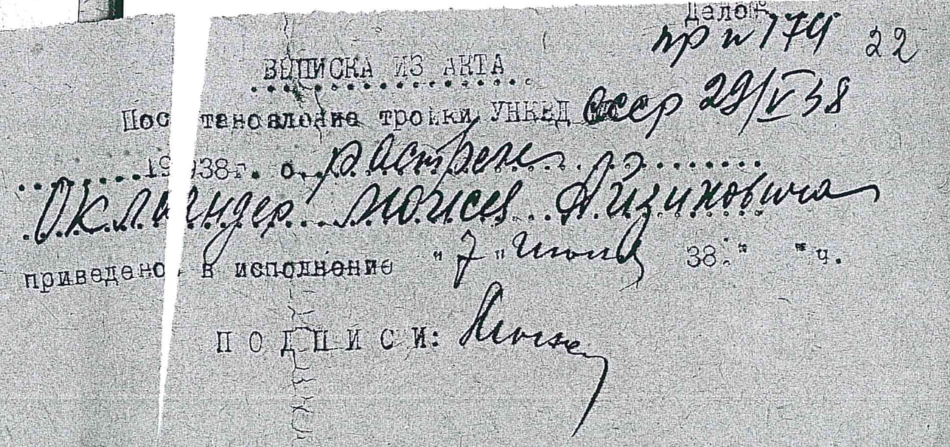 Дело №
пр № 174 22
ВЫПИСКА ИЗ АКТА
Постановление тройки УНКВД СССР 29/V 38
1938г. о расстреле
Окландер Моисея Айзиковича
приведено в исполнение "7" июня 38 " " ч.
ПОДПИСИ: